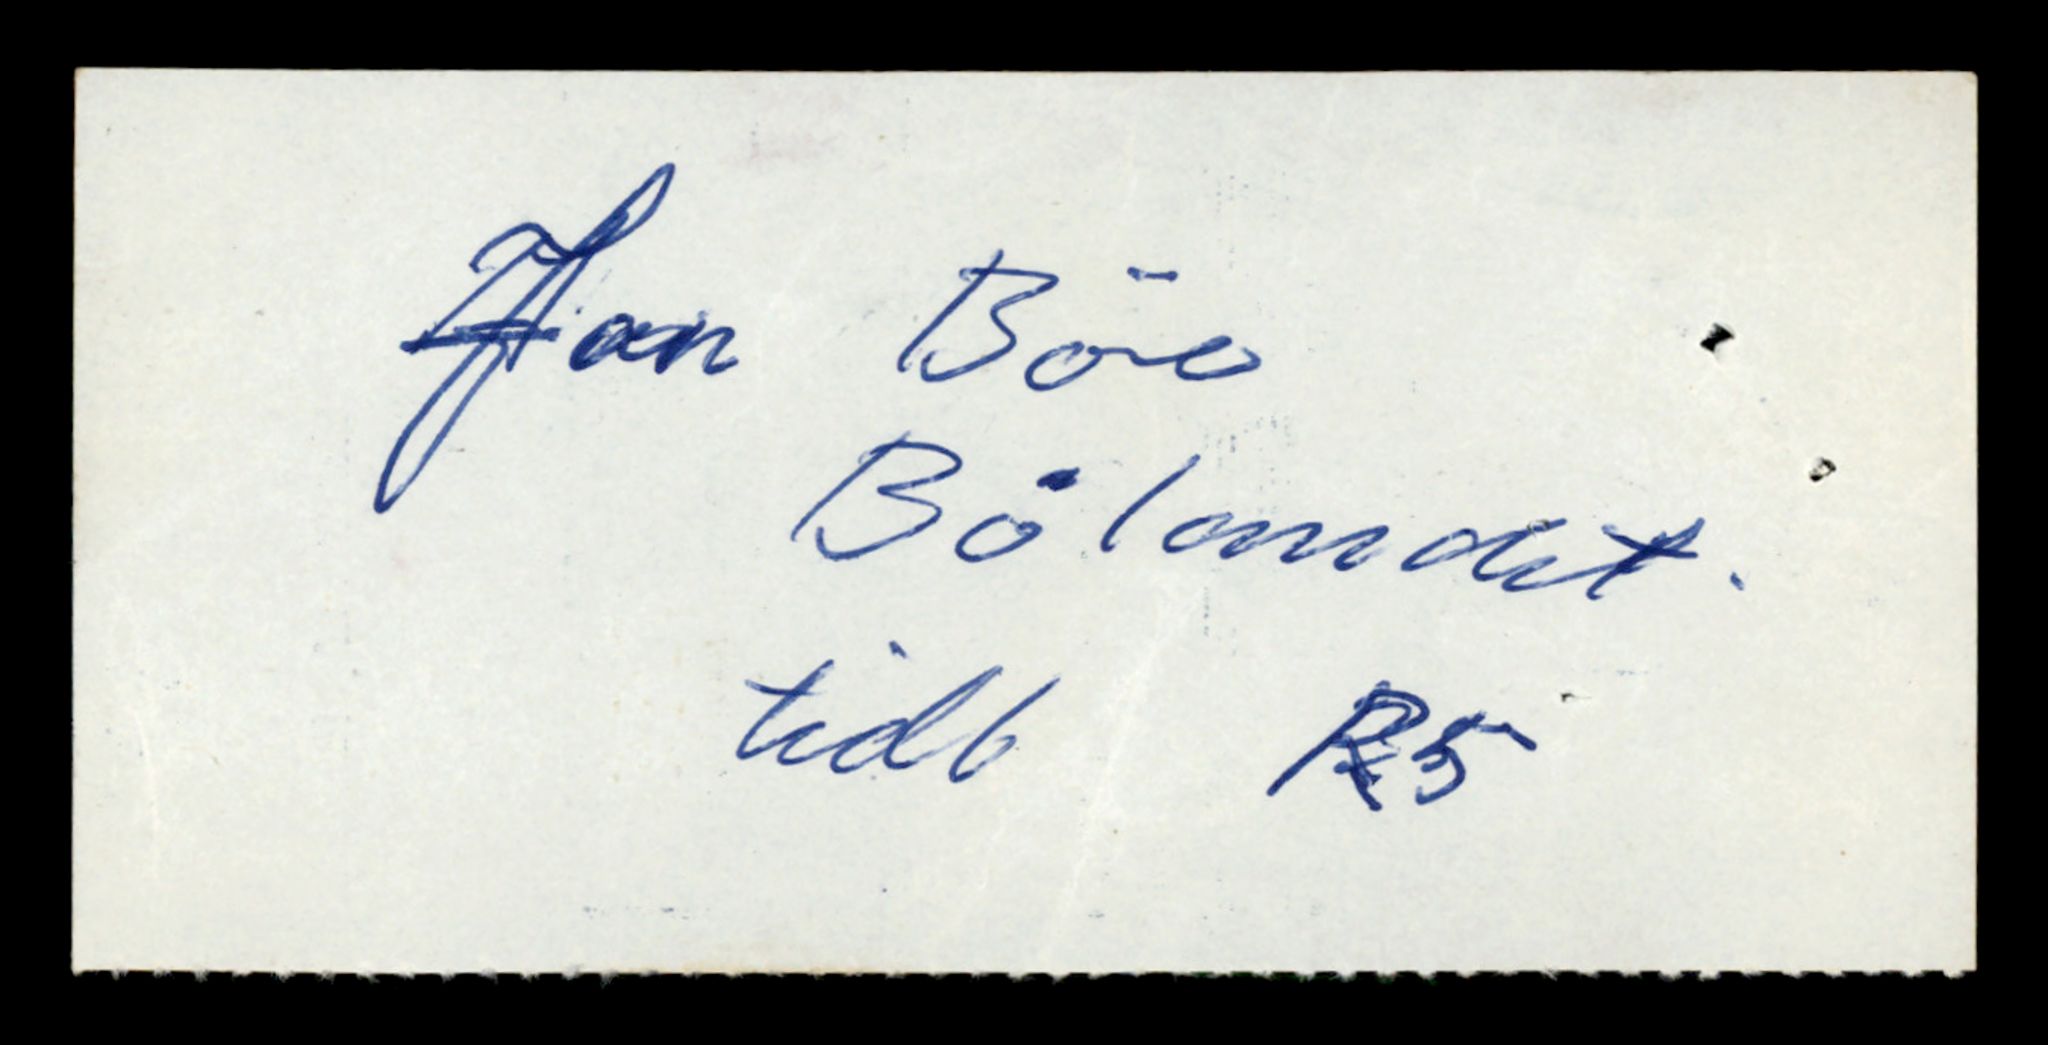 Jan Böe
Bölandet.
tidl R5